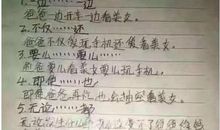 1. 一边……一边
爸爸一边开车一边看美女。
2. 不仅……还
爸爸不仅爱玩手机还爱看美女。
3. 要么……要么……
爸爸要么看美女要么玩手机。
4. 即使……也
即使爸爸再忙,也会抽空看美女。
5. 无论……都
无论